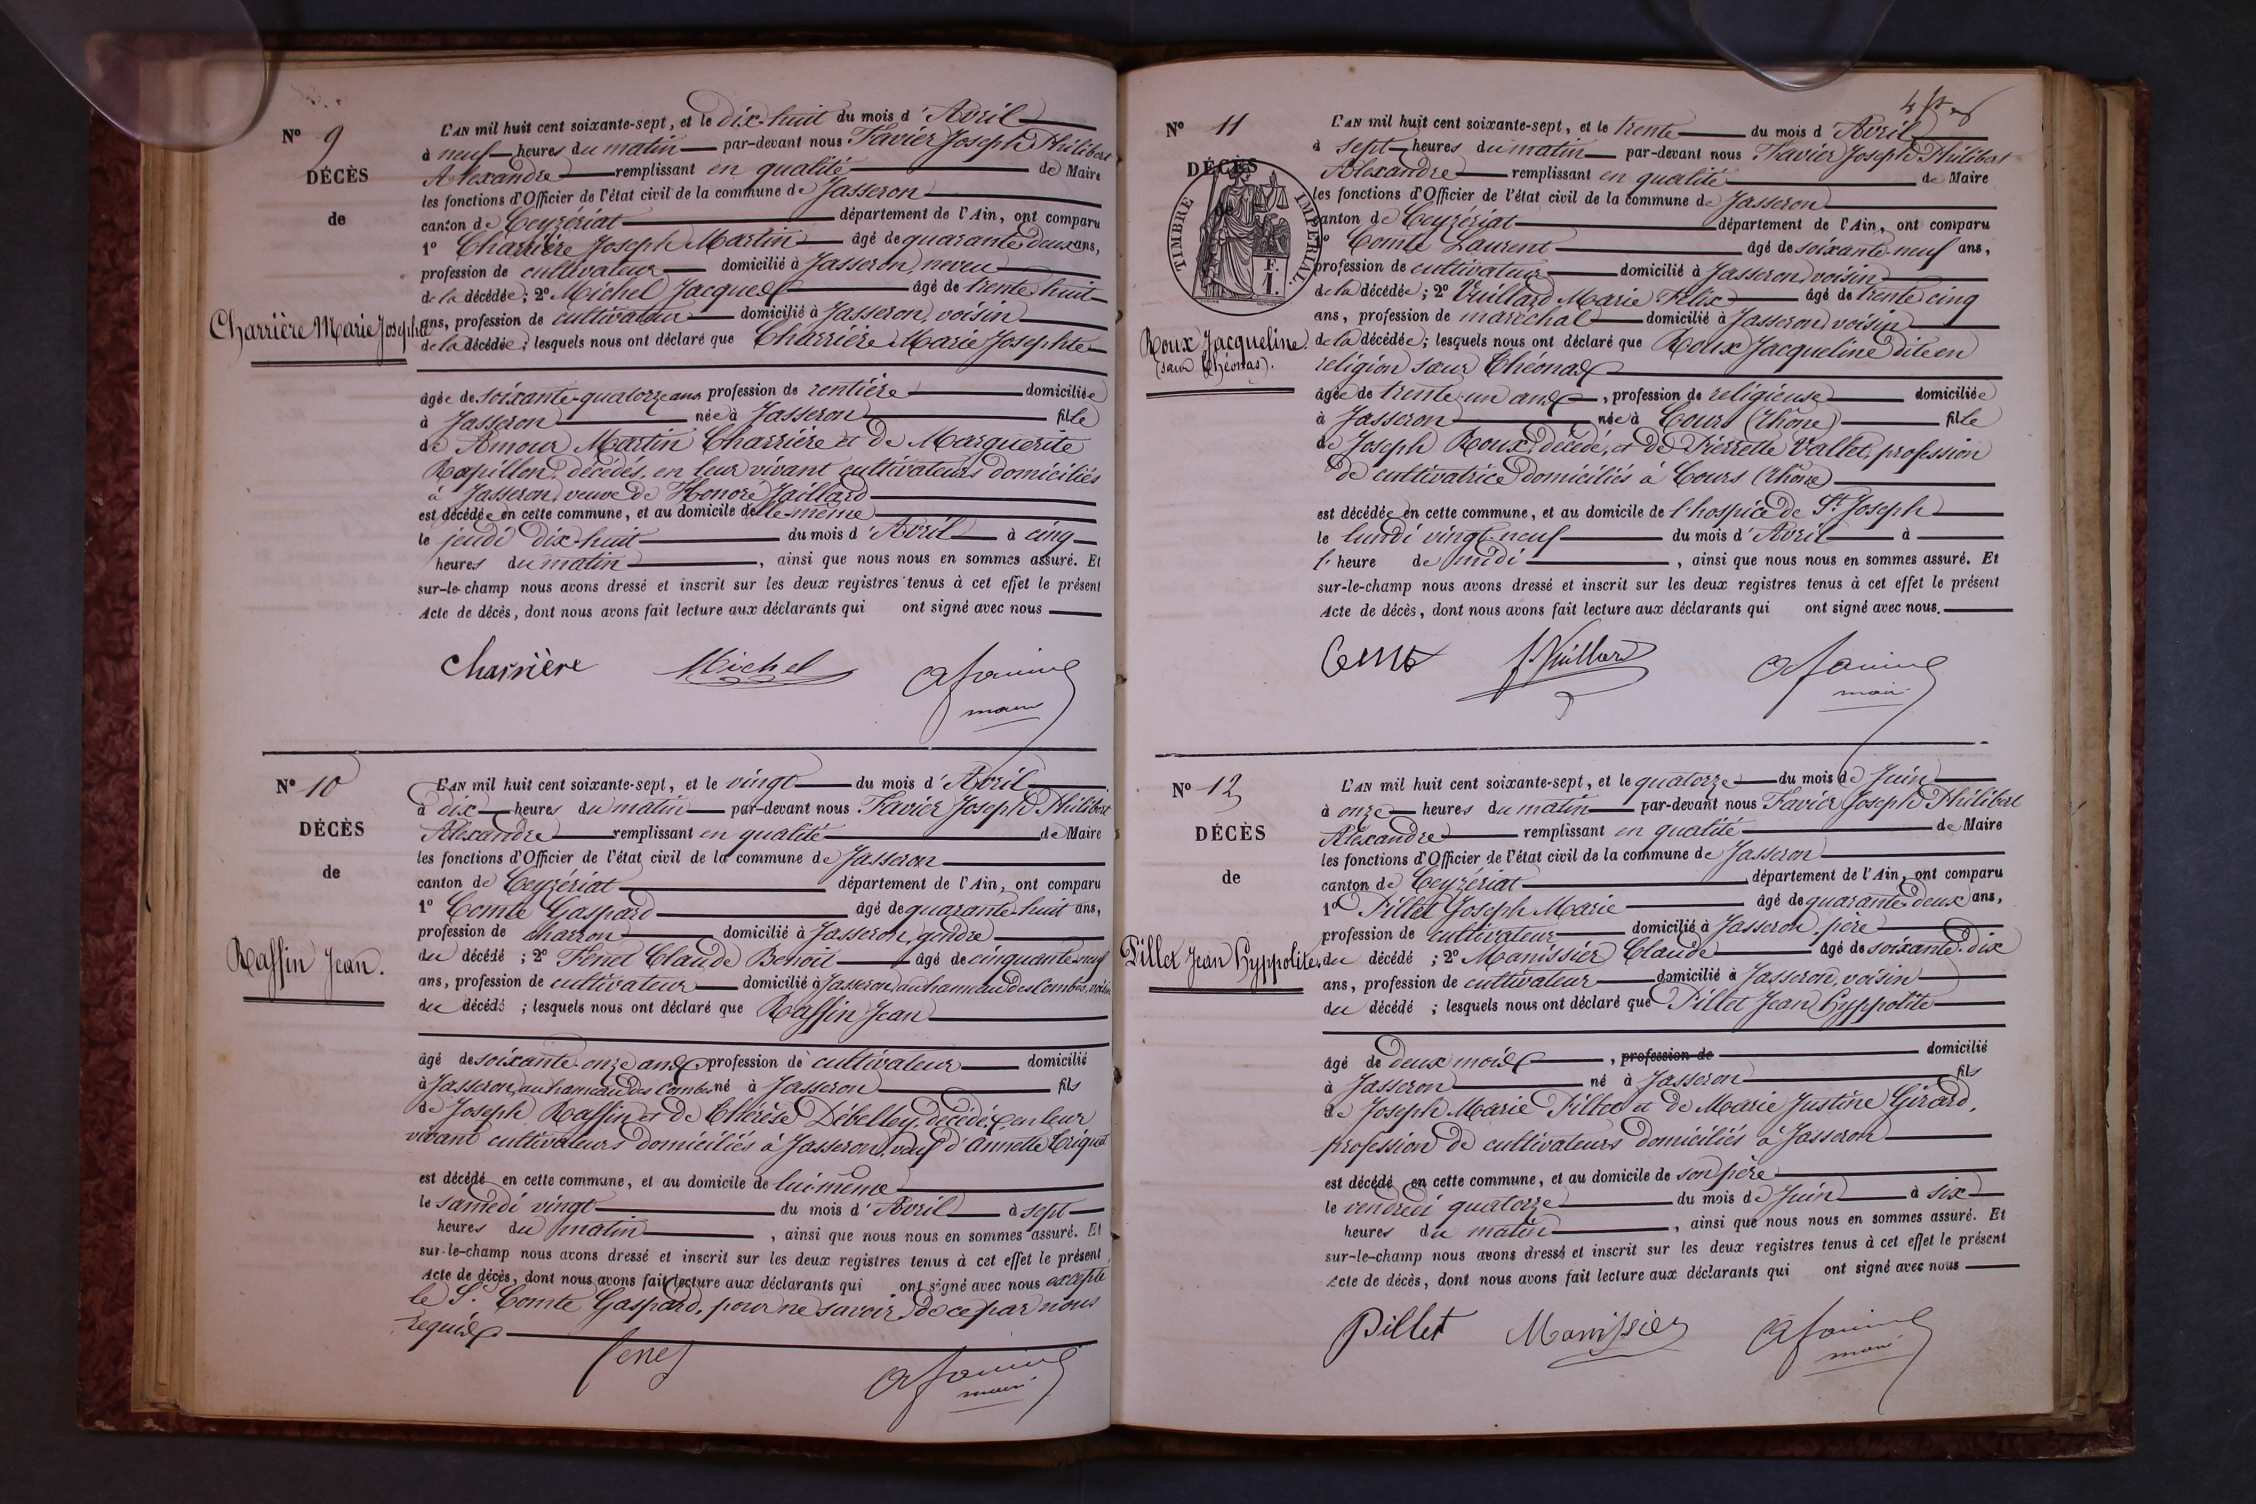 Nº 9
DÉCÈS
de
Charrière Marie Josephte
L'AN mil huit cent soixante-sept, et le dix-huit du mois d'Avril
à neuf heures du matin par-devant nous Favier Joseph Philibert
Alexandre remplissant en qualité de Maire
les fonctions d'Officier de l'état civil de la commune de Jasseron
canton de Ceyzériat département de l'Ain, ont comparu
1º Charrière Joseph Martin âgé de quarante deux ans,
profession de cultivateur domicilié à Jasseron, neveu
de la décédée ; 2º Michel Jacques âgé de trente huit
ans, profession de cultivateur domicilié à Jasseron, voisin
de la décédée ; lesquels nous ont déclaré que Charrière Marie Josephte
âgée de soixante-quatorze ans profession de rentière domiciliée
à Jasseron née à Jasseron fille
de Amour Martin Charrière et de Marguerite
Rapillon, décédés, en leur vivant cultivateurs domiciliés
à Jasseron, veuve de Honoré Jaillard
est décédée en cette commune, et au domicile d'elle-même
le jeudi dix-huit du mois d'Avril à cinq
heures du matin, ainsi que nous nous en sommes assuré. Et
sur-le-champ nous avons dressé et inscrit sur les deux registres tenus à cet effet le présent
Acte de décès, dont nous avons fait lecture aux déclarants qui ont signé avec nous
Charrière Michel
maire
Nº 10
DÉCÈS
de
Raffin Jean.
L'AN mil huit cent soixante-sept, et le vingt du mois d'Avril
à dix heures du matin par-devant nous Favier Joseph Philibert
Alexandre remplissant en qualité de Maire
les fonctions d'Officier de l'état civil de la commune de Jasseron
canton de Ceyzériat département de l'Ain, ont comparu
1º Comte Gaspard âgé de quarante huit ans,
profession de charron domicilié à Jasseron, gendre
du décédé ; 2º Fenet Claude Benoit âgé de cinquante-neuf
ans, profession de cultivateur domicilié à Jasseron, au hameau des Combes, voisin
du décédé ; lesquels nous ont déclaré que Raffin Jean
âgé de soixante-onze ans profession de cultivateur domicilié
à Jasseron, au hameau des Combes né à Jasseron fils
de Joseph Raffin et de Thérèse Débelley, décédés, en leur
vivant cultivateurs domiciliés à Jasseron, veuf d'Annette
est décédé en cette commune, et au domicile de lui-même
le samedi vingt du mois d'Avril à sept
heures du matin, ainsi que nous nous en sommes assuré. Et
sur-le-champ nous avons dressé et inscrit sur les deux registres tenus à cet effet le présent
Acte de décès, dont nous avons fait lecture aux déclarants qui ont signé avec nous excepté
le Sr. Comte Gaspard, pour ne savoir, de ce par nous
requis
maire
Nº 11
DÉCÈS
de
TIMBRE IMPERIAL.
F.
1.
Roux Jacqueline.
(sœur Théonas).
L'AN mil huit cent soixante-sept, et le trente du mois d'Avril
à sept heures du matin par-devant nous Favier Joseph Philibert
Alexandre remplissant en qualité de Maire
les fonctions d'Officier de l'état civil de la commune de Jasseron
canton de Ceyzériat département de l'Ain, ont comparu
1º Comte Laurent âgé de soixante-neuf ans,
profession de cultivateur domicilié à Jasseron, voisin
de la décédée ; 2º Vuillard Marie Félix âgé de trente cinq
ans, profession de maréchal domicilié à Jasseron, voisin
de la décédée ; lesquels nous ont déclaré que Roux Jacqueline dite en
religion sœur Théonas
âgée de trente-un ans, profession de religieuse domiciliée
à Jasseron née à Cours (Rhône) fille
de Joseph Roux, décédé, et de Pierrette Vallet, profession
de cultivatrice domiciliés à Cours (Rhône)
est décédée en cette commune, et au domicile de l'hospice de St Joseph
le lundi vingt-neuf du mois d'Avril à
l'heure de midi, ainsi que nous nous en sommes assuré. Et
sur-le-champ nous avons dressé et inscrit sur les deux registres tenus à cet effet le présent
Acte de décès, dont nous avons fait lecture aux déclarants qui ont signé avec nous.
Comte Vuillard
maire
Nº 12
DÉCÈS
de
Pillet Jean Hyppolite.
L'AN mil huit cent soixante-sept, et le quatorze du mois de Juin
à onze heures du matin par-devant nous Favier Joseph Philibert
Alexandre remplissant en qualité de Maire
les fonctions d'Officier de l'état civil de la commune de Jasseron
canton de Ceyzériat département de l'Ain, ont comparu
1º Pillet Joseph Marie âgé de quarante deux ans,
profession de cultivateur domicilié à Jasseron, père
du décédé ; 2º Manissier Claude âgé de soixante-dix
ans, profession de cultivateur domicilié à Jasseron, voisin
du décédé ; lesquels nous ont déclaré que Pillet Jean Hyppolite
âgé de deux mois, profession de domicilié
à Jasseron né à Jasseron fils
de Joseph Marie Pillet et de Marie Justine Girard,
profession de cultivateurs domiciliés à Jasseron
est décédé en cette commune, et au domicile de son père
le vendredi quatorze du mois de Juin à six
heures du matin, ainsi que nous nous en sommes assuré. Et
sur-le-champ nous avons dressé et inscrit sur les deux registres tenus à cet effet le présent
Acte de décès, dont nous avons fait lecture aux déclarants qui ont signé avec nous
Pillet Manissier
maire